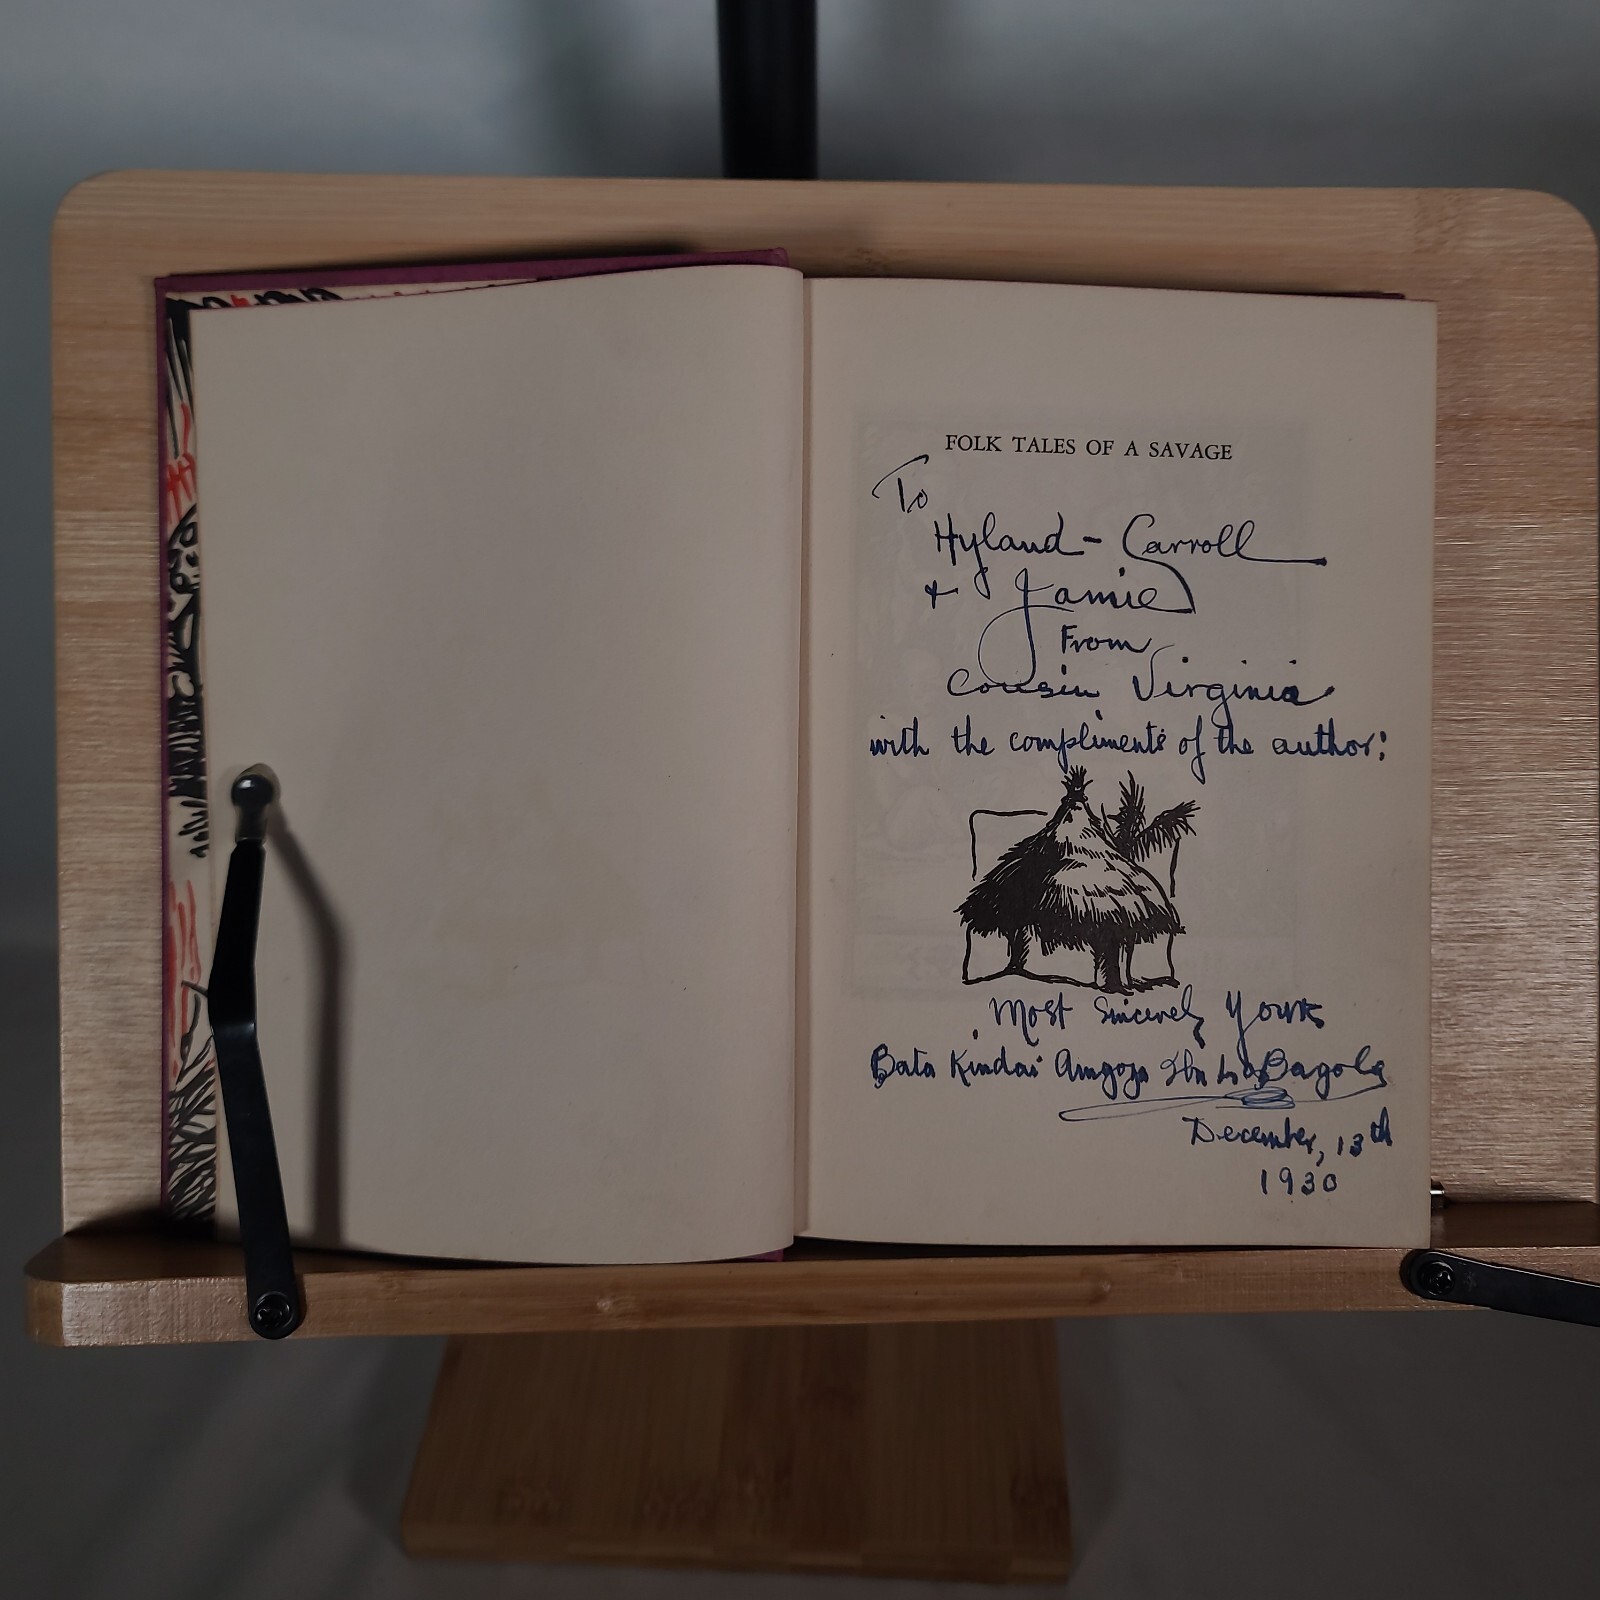 FOLK TALES OF A SAVAGE
To
Hyland - Carroll
+ Jamie
From
Cousin Virginia
with the compliments of the author:
Most Sincerely Yours
Bata Kindai Amgoza Ibn LoBagola
December, 13th
1930